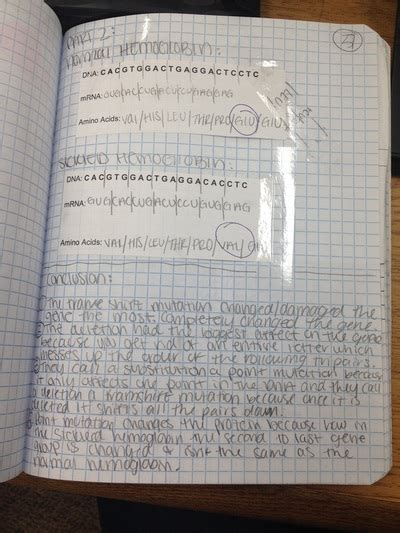 Part 2:
Normal Hemoglobin:
DNA: CACGTGGACTGAGGACTCCTC
mRNA: GUG|CAC|CUG|ACU|CCU|GAG|GAG
Amino Acids: VAl/HIS/LEU/THR/PRO/GLU/GLU
Sickled Hemoglobin:
DNA: CACGTGGACTGAGGACACCTC
mRNA: GUG|CAC|CUG|ACU|CCU|GUG|GAG
Amino Acids: VAl/HIS/LEU/THR/PRO/VAl/GlU
Conclusion:
The frame shift mutation changed/damaged the
gene the most. completely changed the gene.
The deletion had the biggest affect on the gene
because you get rid of an entire letter which
messes up the order of the following
They call a substitution a point mutation because
it only affects one point in the and they call
a deletion a mutation because once it is
deleted it shifts all the pairs down.
Point mutation changes the protein because how in
the sickled hemoglobin the second to last gene
group is changed & isnt the same as the
normal hemogloom.